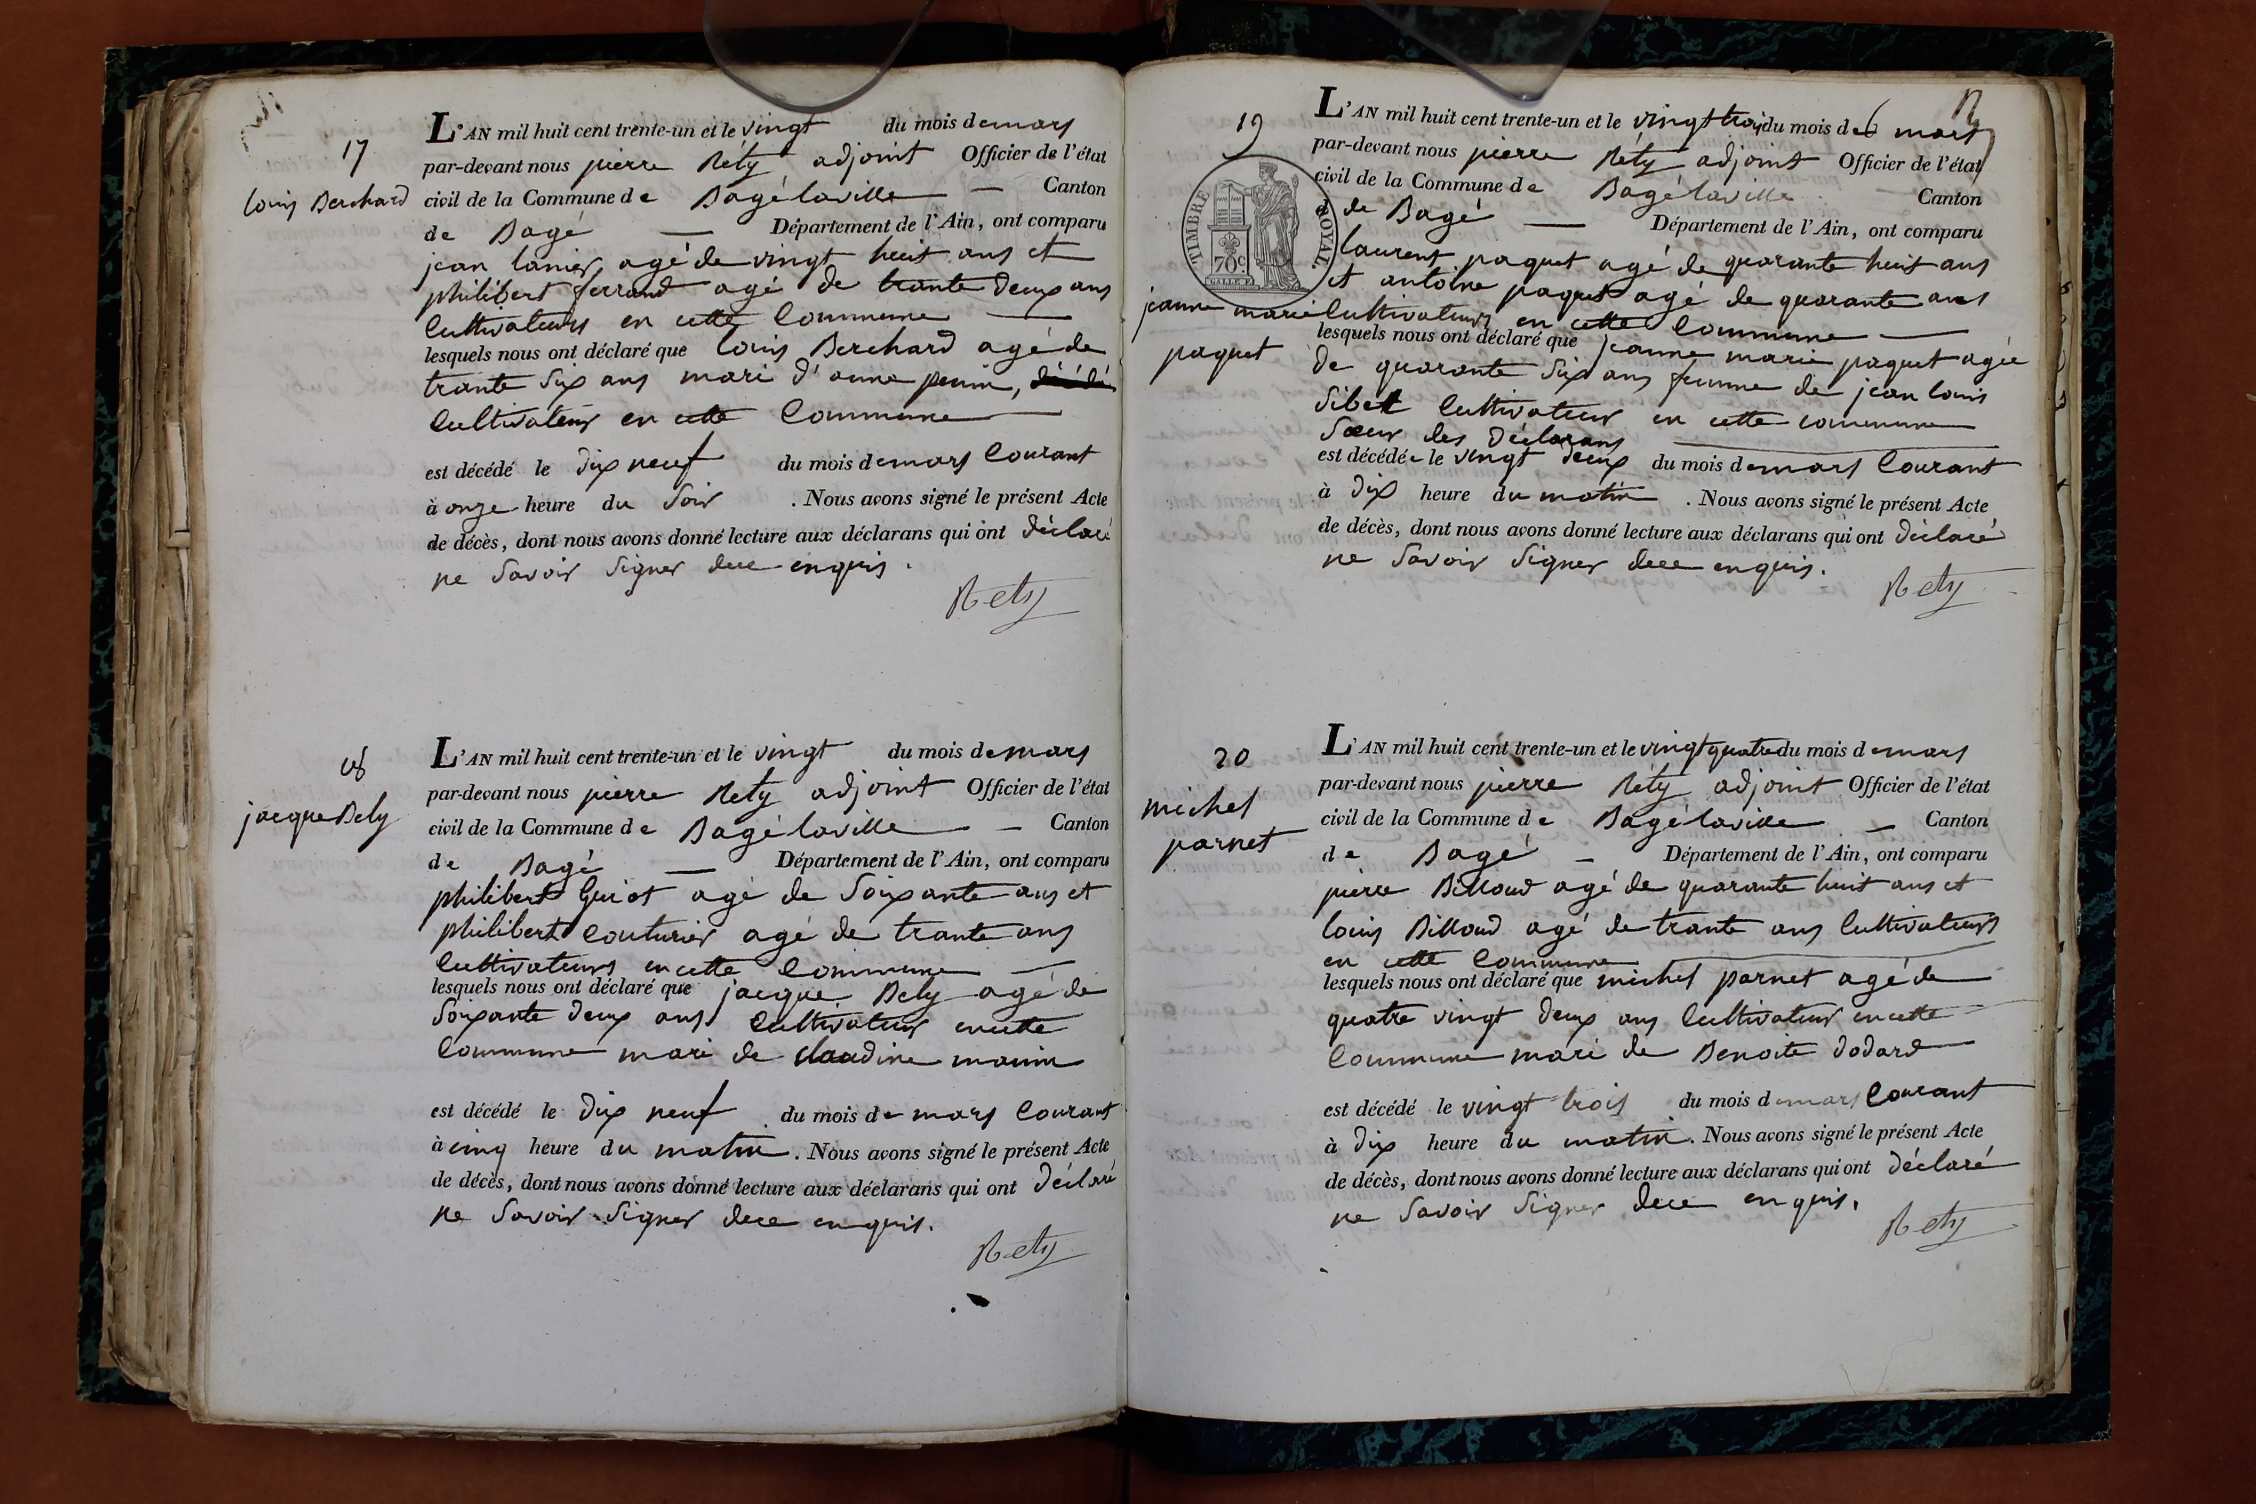 17
Louis Berchard
L'AN mil huit cent trente-un et le vingt du mois de mars
par-devant nous pierre Réty adjoint Officier de l'état
civil de la Commune de Bagé laville — Canton
de Bagé — Département de l'Ain, ont comparu
jean lanier, agé de vingt huit ans et
philibert ferrand agé de trante deux ans
Cultivateurs en cette Commune —
lesquels nous ont déclaré que Louis Berchard agé de
trante six ans mari d'anne penin, décédé
Cultivateur en cette Commune —
est décédé le dix neuf du mois de mars Courant
à onze heure du soir . Nous avons signé le présent Acte
de décès, dont nous avons donné lecture aux déclarans qui ont déclaré
ne savoir signer dece enquis.
Rety
18
jacque Bely
L'AN mil huit cent trente-un et le vingt du mois de mars
par-devant nous pierre Réty adjoint Officier de l'état
civil de la Commune de Bagé laville — Canton
de Bagé — Département de l'Ain, ont comparu
philibert Guiot agé de soixante ans et
philibert couturier agé de trante ans
Cultivateurs en cette Commune —
lesquels nous ont déclaré que jacque Bely agé de
soixante deux ans Cultivateur en cette
Commune mari de claudine manin
est décédé le dix neuf du mois de mars Courant
à cinq heure du matin . Nous avons signé le présent Acte
de décès, dont nous avons donné lecture aux déclarans qui ont déclaré
ne savoir signer dece enquis.
Rety
12
19
TIMBRE ROYAL.
70 c.
jeanne marie
paquet
L'AN mil huit cent trente-un et le vingt trois du mois de mars
par-devant nous pierre Réty adjoint Officier de l'état
civil de la Commune de Bagé laville Canton
de Bagé — Département de l'Ain, ont comparu
laurent paquet agé de quarante huit ans
et antoine paquet agé de quarante ans
Cultivateurs en cette Commune —
lesquels nous ont déclaré que jeanne marie paquet agée
de quarante six ans femme de jean louis
Sibet Cultivateur en cette commune
sœur des déclarans —
est décédée le vingt deux du mois de mars Courant
à dix heure du matin . Nous avons signé le présent Acte
de décès, dont nous avons donné lecture aux déclarans qui ont déclaré
ne savoir signer dece enquis.
Rety
20
michel
parnet
L'AN mil huit cent trente-un et le vingt quatre du mois de mars
par-devant nous pierre Réty adjoint Officier de l'état
civil de la Commune de Bagé laville — Canton
de Bagé — Département de l'Ain, ont comparu
pierre Billoud agé de quarante huit ans et
louis Billoud agé de trante ans Cultivateurs
en cette Commune —
lesquels nous ont déclaré que michel parnet agé de
quatre vingt deux ans Cultivateur en cette
Commune mari de Benoite dodard
est décédé le vingt trois du mois de mars Courant
à dix heure du matin . Nous avons signé le présent Acte
de décès, dont nous avons donné lecture aux déclarans qui ont déclaré
ne savoir signer dece enquis.
Rety